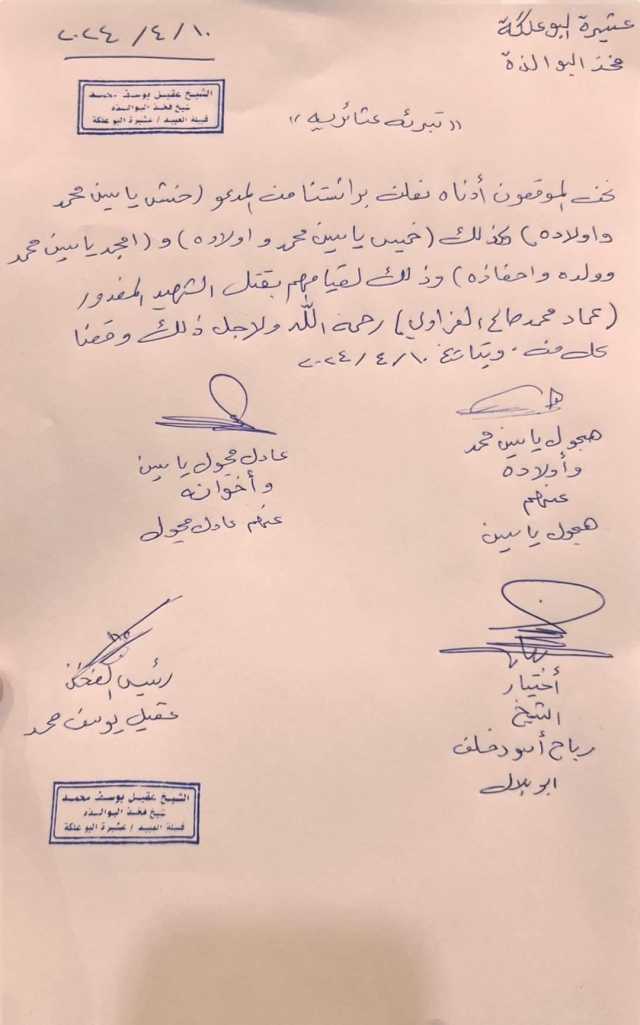 عشيرة البو علكة
٢٠٢٤/٤/١٠
فخذ البو الذة
الشيخ عقيل يوسف محمد
شيخ فخذ البوالذه
قبيلة العبيد / عشيرة البو علكة
"تبرئه عشائريه"
نحن الموقعون أدناه نعلن برائتنا من المدعو (حنش ياسين محمد
واولاده) وكذلك (خميس ياسين محمد واولاده) و (امجد ياسين محمد
وولده واحفاده) وذلك لقيامهم بقتل الشهيد المغدور
(عماد محمد صالح العزاوي) رحمه الله ولاجل ذلك وقعنا
بتاريخ ٢٠٢٤/٤/١٠
هجول ياسين محمد
وأولاده
عنهم
هجول ياسين
عادل محجول ياسين
وأخوانه
عنهم عادل محجول
أختيار
الشيخ
رباح أسود خلف
ابو بلال
رئيس الفخذ
عقيل يوسف محمد
الشيخ عقيل يوسف محمد
شيخ فخذ البوالذه
قبيلة العبيد / عشيرة البو علكة